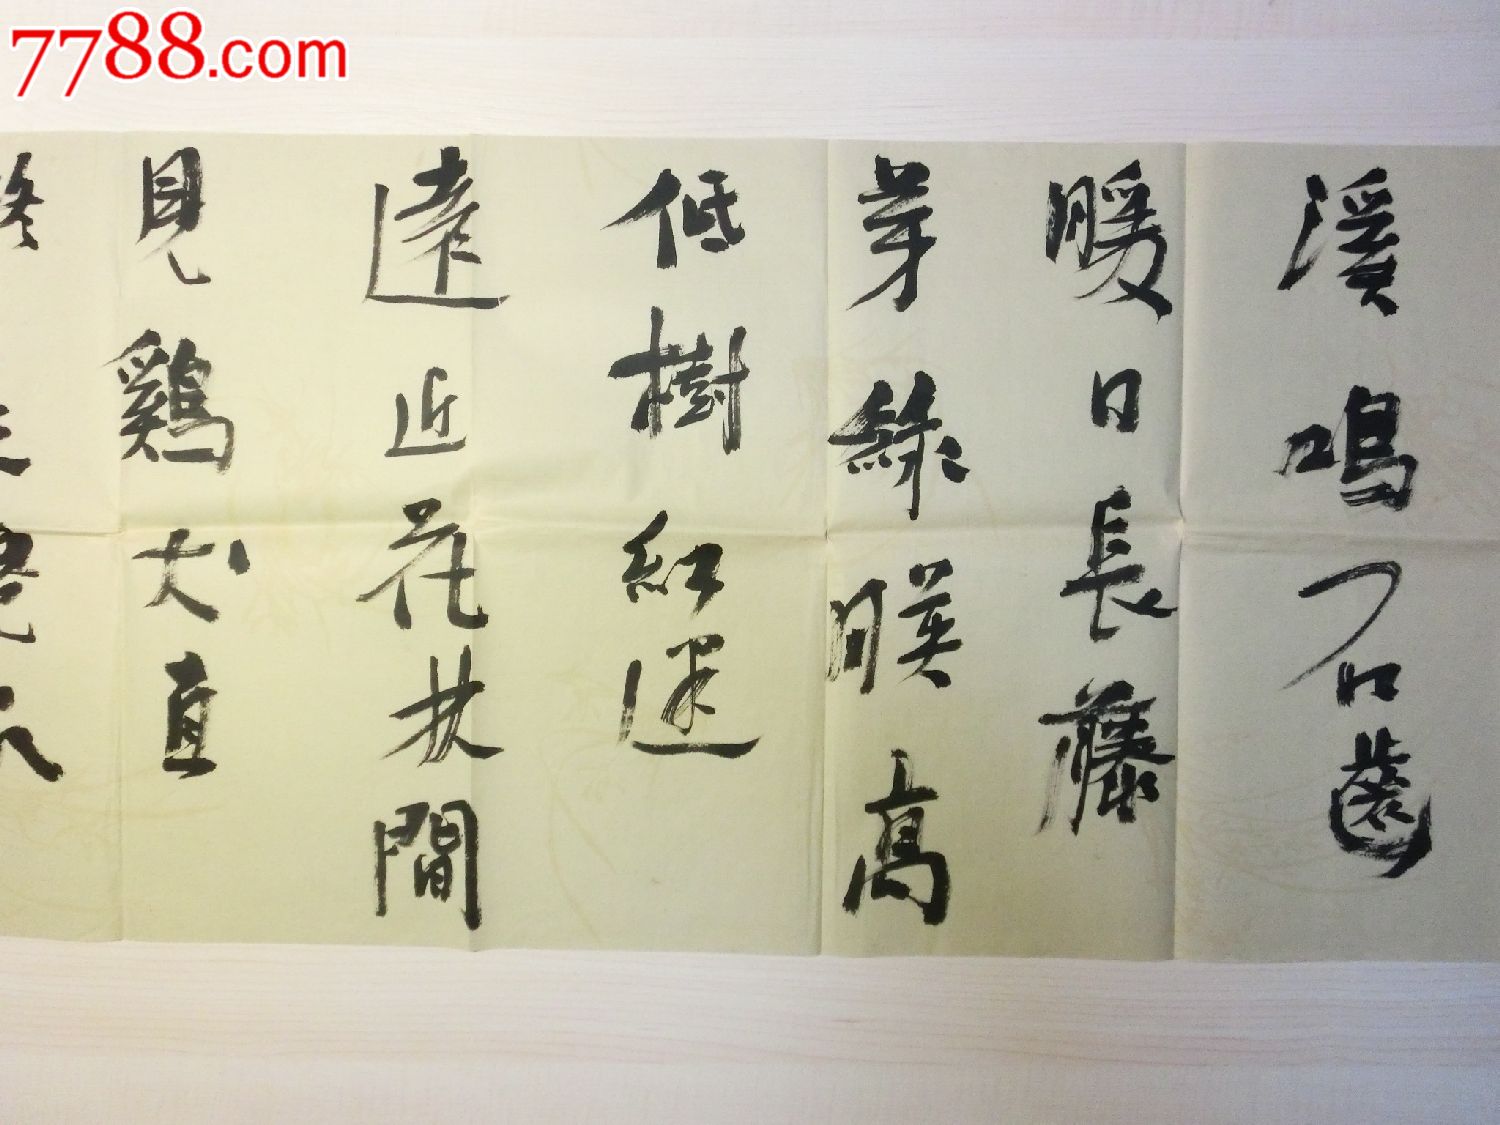 7788.com
溪鳴石齒
暖日長藤
芽綠映高
低樹紅迷
遠近花扶間
見鷄犬直